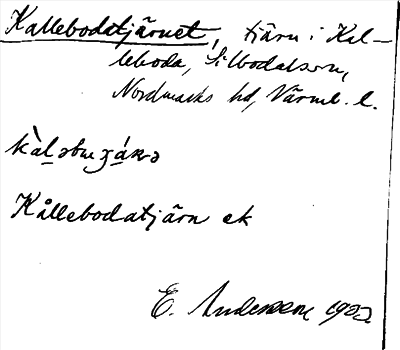 Kallebodatjärnet, tjärn i Kal-
leboda, Silbodals sn,
Nordmarks hd, Värml. l.
Kållebodatjärn ek
E. Andersson 1922